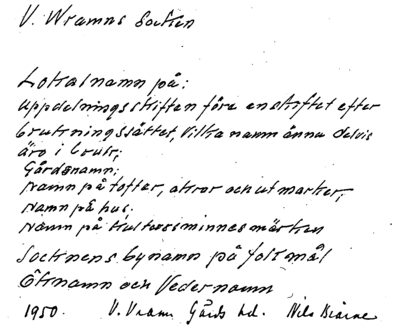 V. Wrams Socken
Lokalnamn på:
uppdelningsskiften före enskiftet efter
brukningssättet, vilka namn ännu delvis
äro i bruk;
Gårdsnamn;
Namn på tofter, åkrar och utmarker;
Namn på hus.
Namn på kulturminnesmärken
Socknens bynamn på folkmål
Öknamn och Vedernamn
1950. V. Vram Gärds hd. Nils Beärne